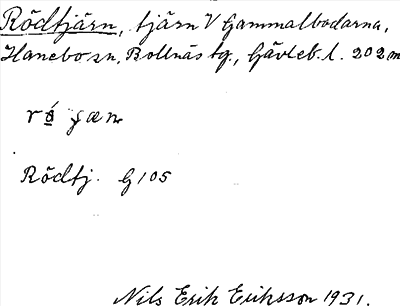 Rödtjärn, tjärn V Gammalbodarna,
Hanebo sn, Bollnäs tg., Gävleb. l. 202m
Rödtj. G 105
Nils Erik Eriksson 1931.